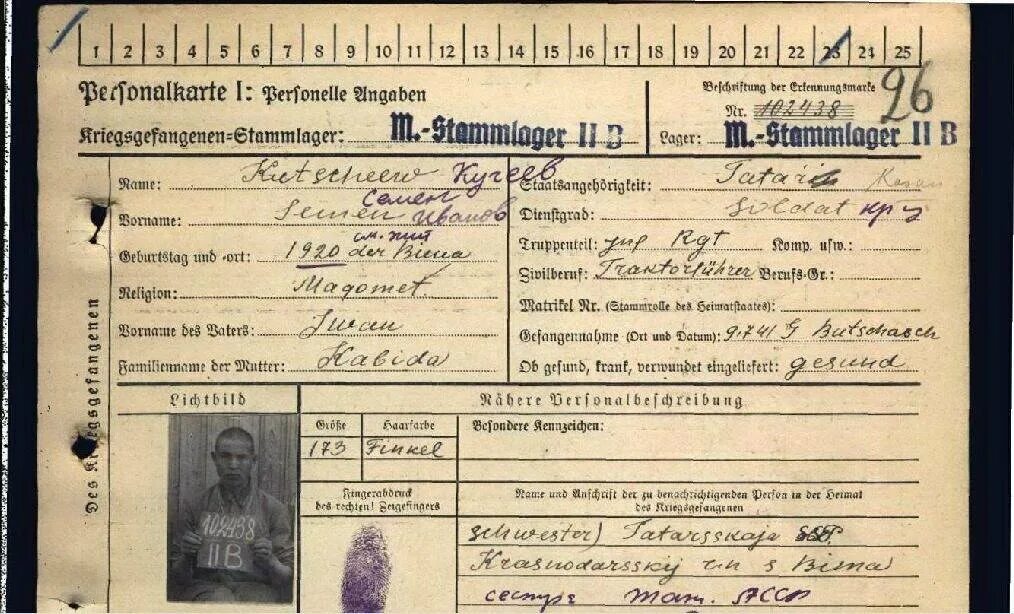 1 2 3 4 5 6 7 8 9 10 11 12 13 14 15 16 17 18 19 20 21 22 23 24 25
Personalkarte I: Personelle Angaben
Beschriftung der Erkennungsmarke
Nr. 102438
26
Kriegsgefangenen-Stammlager: M.-Stammlager II B
Lager: M.-Stammlager II B
Des Kriegsgefangenen
Name: Kutscheew Кучеев
Vorname: Semen Семен Иванов
Geburtstag und -ort: 1920 der Bima
Religion: Magomet.
Vorname des Vaters: Iwan
Familienname der Mutter: Kabida
Staatsangehörigkeit: Tatar Kasan
Dienstgrad: Soldat кр
Truppenteil: Inf Rgt Komp. usw.:
Zivilberuf: Traktorführer Berufs-Gr.:
Matrikel Nr. (Stammrolle des Heimatstaates):
Gefangennahme (Ort und Datum): 9.7.41 G Butschasch
Ob gesund, krank, verwundet eingeliefert: gesund
Lichtbild
Nähere Personalbeschreibung
Größe
Haarfarbe
Besondere Kennzeichen:
173
102438
II B
Fingerabdruck
des rechten! Zeigefingers
Name und Anschrift der zu benachrichtigenden Person in der Heimat
des Kriegsgefangenen
Schwester) Tatarsskaja SSR
Krasnodarsskij r.n s Bima
сестра Тат. АССР